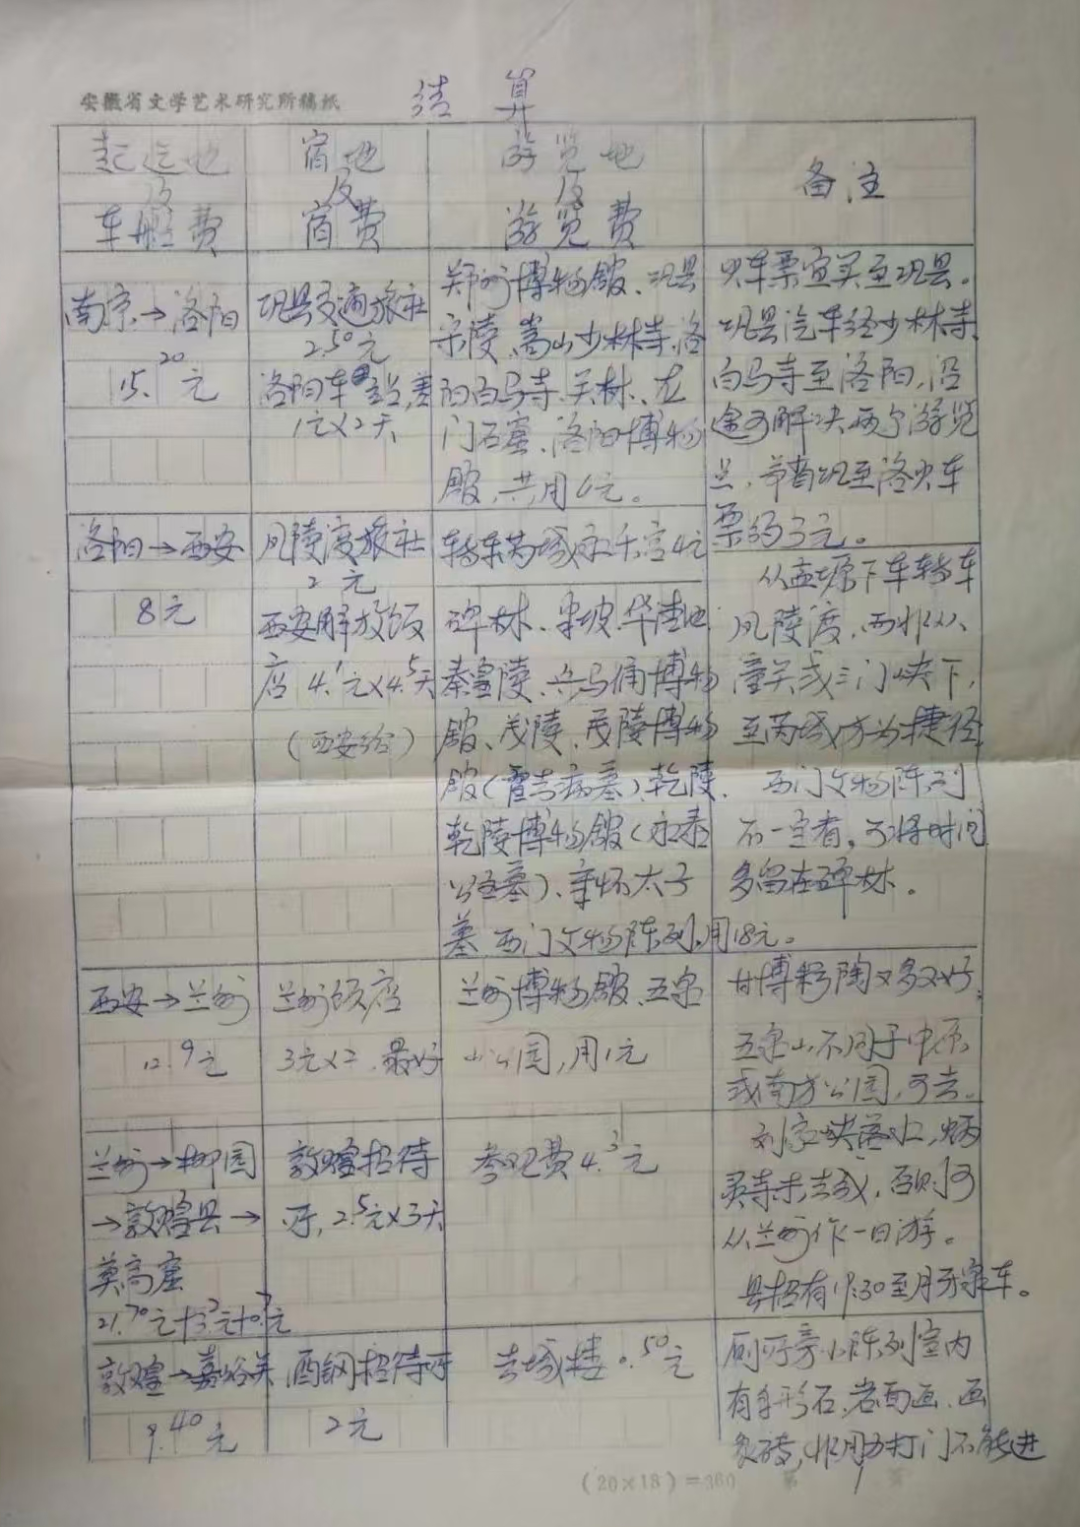 安徽省文学艺术研究所稿纸
结 算
起迄地
及
车船费
宿地
及
宿费
游览地
及
游览费
备注
南京→洛阳
15.20元
巩县交通旅社
2.50元
洛阳车
1元×2天
郑州博物馆、巩县
宋陵、嵩山少林寺、洛
阳白马寺、关林、龙
门石窟、洛阳博物
馆,共用6元。
火车票宜买至巩县。
巩县汽车经少林寺、
白马寺至洛阳,沿
途可解决两个游览
点,节省巩至洛火车
票约3元。
洛阳→西安
8元
风陵渡旅社
2元
西安解放饭
店 4.1元×4.5天
(西安给)
转车芮城永乐宫4元
碑林、半坡、华清池、
秦皇陵、兵马俑博物
馆、茂陵、茂陵博物
馆(霍去病墓)、乾陵、
乾陵博物馆(永泰
公主墓)、章怀太子
墓、西门文物陈列,用18元。
从孟塬下车转车
风陵渡,而非从
潼关或三门峡下,
至芮城方为捷径。
西门文物陈列
不一定看,可将时间
多留在碑林。
西安→兰州
12.9元
兰州饭店
3元×2 最好
兰州博物馆、五泉
山公园,用1元
甘博彩陶又多又好,
五泉山不同于中原
或南方公园,可去。
兰州→柳园
→敦煌县→
莫高窟
21.70元+3.2元+0.7元
敦煌招待
所,2.5元×3天
参观费4.3元
刘家峡落水,炳
灵寺未去成,否则可
从兰州作一日游。
县招有19:30至月牙泉车。
敦煌→嘉峪关
9.40元
酒钢招待所
2元
去城楼0.50元
厕所旁小陈列室内
有身形石、岩面画、画
象砖,非用力打门不能进
(20×18)=360
第